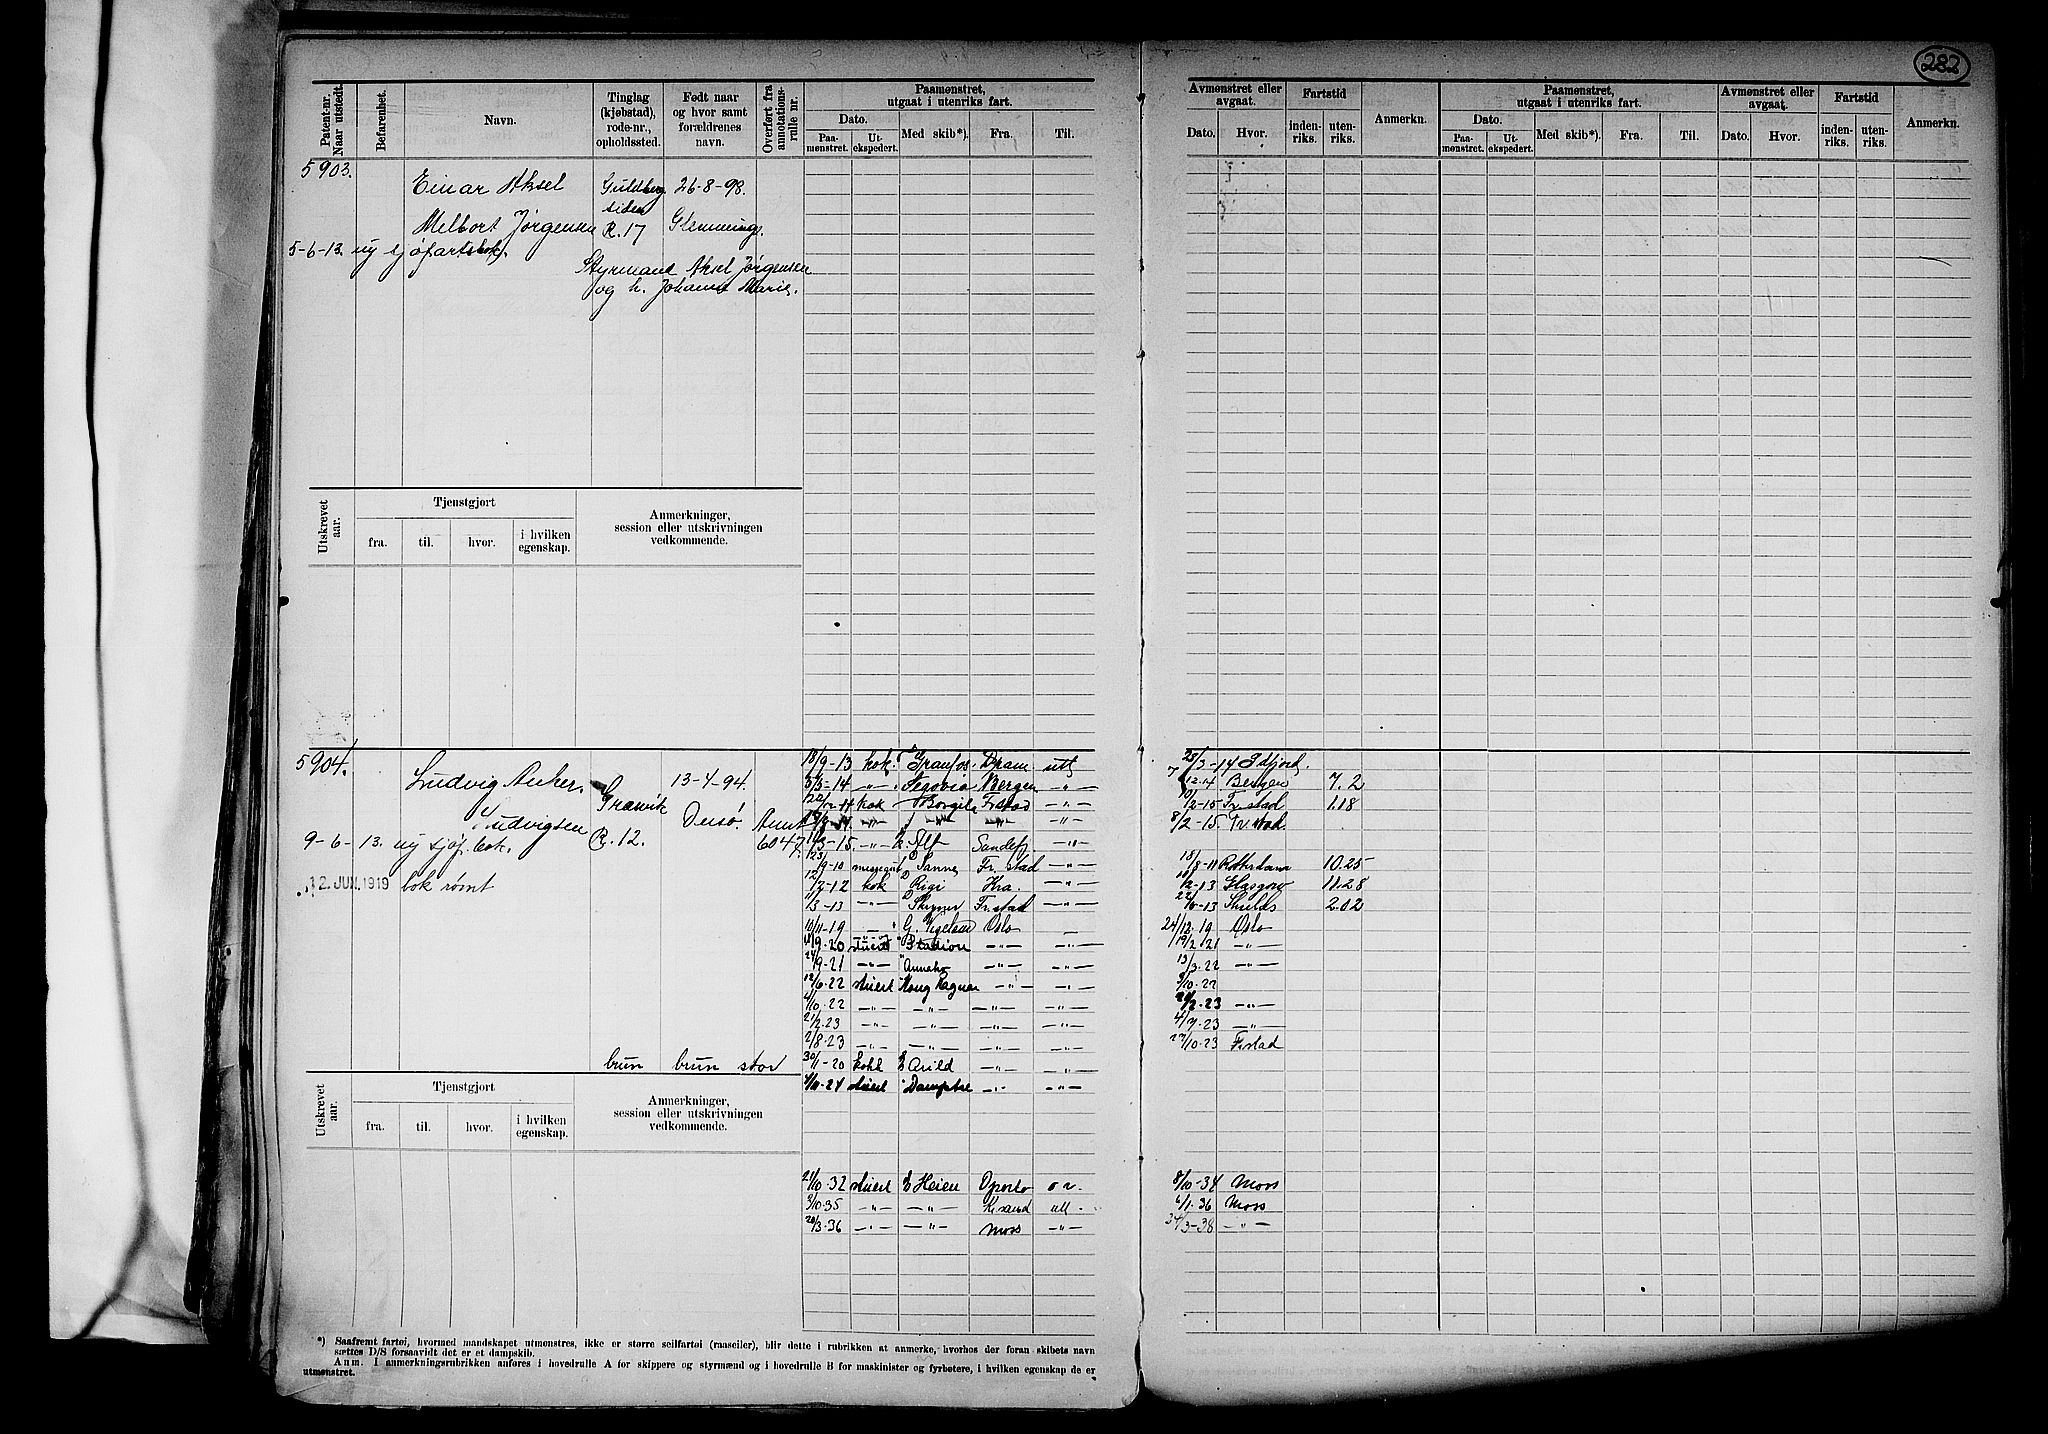 282
Patent-nr. Naar utstedt.
Befarenhet.
Navn.
Tinglag (kjøbstad), rode-nr., opholdssted.
Født naar og hvor samt forældrenes navn.
Overført fra annotations-rulle nr.
Paamønstret, utgaat i utenriks fart.
Dato.
Paa-mønstret.
Ut-ekspedert.
Med skib*).
Fra.
Til.
Avmønstret eller avgaat.
Dato.
Hvor.
Fartstid
inden-riks.
uten-riks.
Anmerkn.
Paamønstret, utgaat i utenriks fart.
Dato.
Paa-mønstret.
Ut-ekspedert.
Med skib*).
Fra.
Til.
Avmønstret eller avgaat.
Dato.
Hvor.
Fartstid
inden-riks.
uten-riks.
Anmerkn.
5903.
Einar Aksel
26-8-98.
Melbort Jørgensen R. 17
5-6-13. ny sjøfartsbok.
Styrmand Aksel Jørgensen
og h. Johanne Marie.
Utskrevet aar.
Tjenstgjort
fra.
til.
hvor.
i hvilken egenskap.
Anmerkninger, session eller utskrivningen vedkommende.
5904.
Ludvig Anker
Ludvigsen
13-4-94.
R. 12.
6047
9-6-13. ny sjøf. bok.
12. JUN. 1919 bok rømt
brun brun stor
18/9-13 kok Granfos Dram utl 23/3-14
-14 -"- Segovia Bergen -"- Bergen 7.2
kok Borgila Fr.stad -"- 10/2-15 Fr.stad 1.18
8/2-15. Fr.stad.
-15. -"- Alf Sandefj. -"-
23/9-10 Sanne Fr.stad -"- 18/8-11 Rotterdam 10.25
12/2-12 kok Rigi Kra. -"- 2-13 Glasgow 11.28
11/3-13 -"- Fr.stad -"- -13 Shields 2.02
10/11-19 -"- G. Vigeland Oslo 24/12.19 Oslo
18/9-20 Stadion -"- -"- 19/2.21 -"-
24/9-21 -"- -"- -"- 13/3-22 -"-
12/6.22 stuert Kong Ragnar -"- -"- /10.22
4/10.22 -"- -"- -"- -"- 2.23 -"-
21/2.23 -"- -"- -"- -"- 4/7.23 -"-
2/8.23 -"- -"- -"- -"- 27/10.23 Fr.stad
30/11-20 Arild -"- -"-
4/10-24 stuert -"- -"-
Utskrevet aar.
Tjenstgjort
fra.
til.
hvor.
i hvilken egenskap.
Anmerkninger, session eller utskrivningen vedkommende.
21/10.32 stuert Heien Oporto 8/10-34 Moss
3/10.35 -"- -"- utl 6/1.36 Moss
20/3.36 -"- -"- Moss -"- 3-38 -"-
*) Saafremt fartøi, hvormed mandskapet utmønstres, ikke er større seilfartøi (raaseiler), blir dette i rubrikken at anmerke, hvorhos der foran skibets navn
sættes D/S forsaavidt det er et dampskib.
Anm. I anmerkningsrubrikken anføres i hovedrulle A for skippere og styrmænd og i hovedrulle B for maskinister og fyrbøtere, i hvilken egenskap de er
utmønstret.